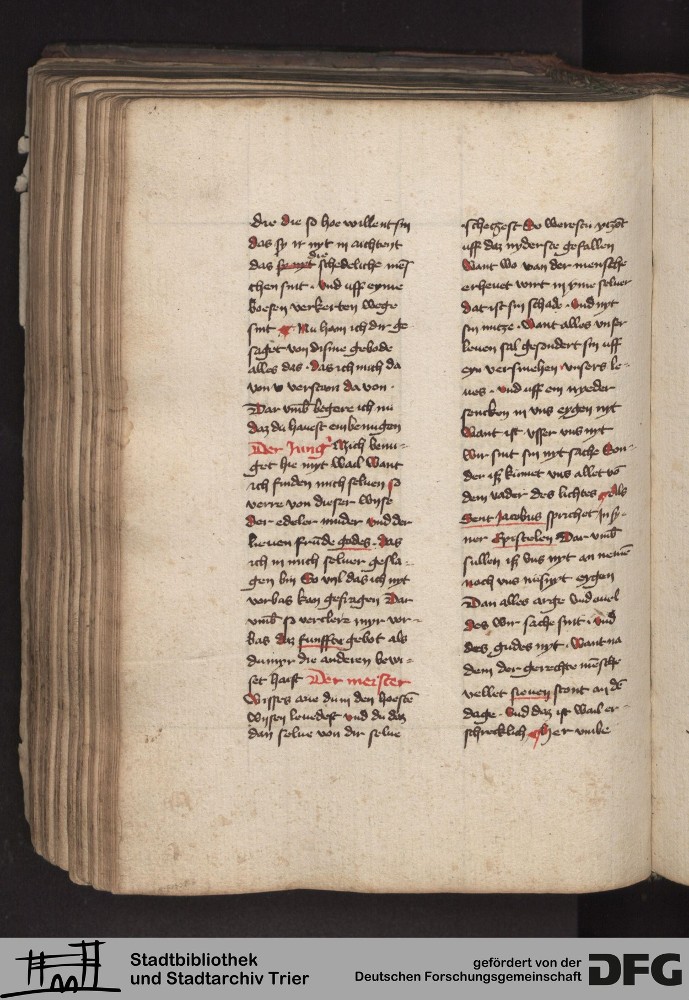 die die so hoe willent sin
das sy it nyt in aichtent
das sy nyt die schedeliche mēs
chen sint . vnd vff eynne
boesen verkerten wege
sint Nu hain ich dir ge
saget von disme gebode
alles das . das ich mich da
von v verstain da von .
Dar vmb begere ich nu
daz du hauest ein benugen
Der Jung Mich benu-
get hie nyt wail want
ich finden mich seluen so
verre von dieser wyse
der edeler muder vnd der
lieuen frūde godes . das
ich in mich seluer gesla-
gen bin So vyl das ich nyt
vorbas kan gefragen Dar
vmb so verclere myr vor-
bas daz funffte gebot als
du myr die anderen bewi-
set haist Der meister
Wisses aue du in den hoestē
wysen leuedest vnd du daz
dan selue von dir selue
schetzest So werestu yzont
vff daz nyderste gefallen
Want wo van der mensche
erheuet wirt in yme seluer
dat ist sin schade . vnd nyt
sin nutze . Want alles vnser
leuen sal gesondert sin vff
eyn versmehen vnsers le-
uens . vnd vff ein nyeder
sencken in vns eygen nyt
Want ist vsser vns nyt
wir sint sin nyt sache Son-
der iß kūmet vns allet vō
dem vader des lichtes Als
Sent Jacobus sprichet in sy-
ner Epistolen Dar vmb
sullen iß vns nyt an nemē
noch vns nusnyt eygen
Dan alles arge vnd ouel
des wir sache sint . vnd
des gudes nyt . Want na
dem der gerechte mēsche
vellet sieuen stont an dē
dage . vnd daz ist wail er-
schrecklich Her vmbe
Stadtbibliothek
und Stadtarchiv Trier
gefördert von der
Deutschen Forschungsgemeinschaft
DFG